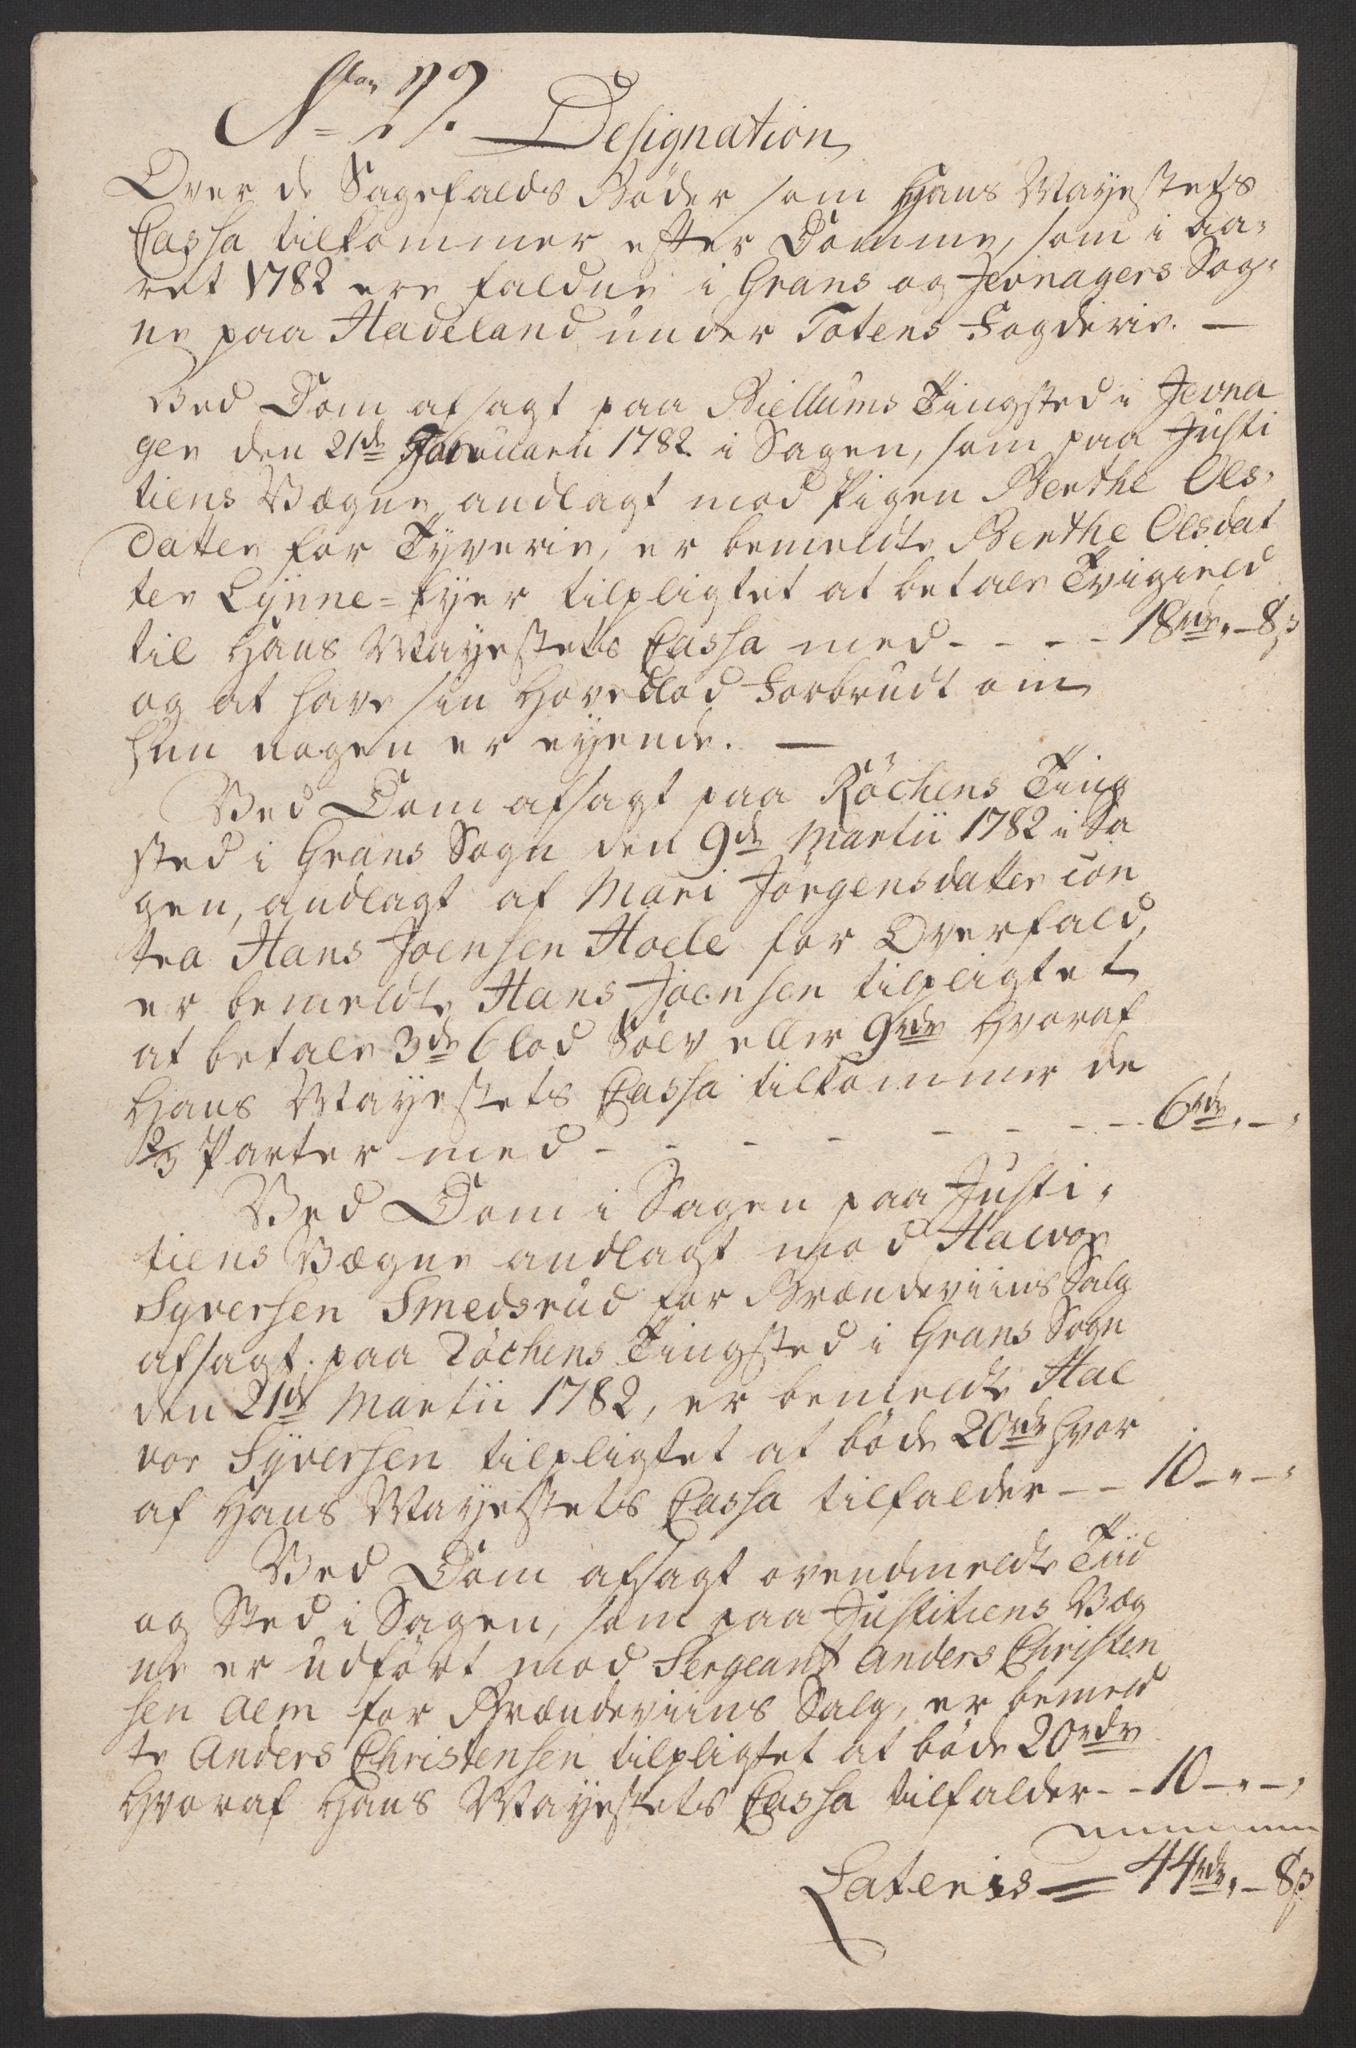 No 27. Designation
Over de Sagefalds Bøder som Hans Mayestets
Cassa tilkommer efter Domme, som i Aa-
ret 1782 ere faldne i Grans og Jevnagers Sog-
ne paa Hadeland under Totens Fogderie. —
Ved Dom afsagt paa Biellums Tingsted i Jevna
ger den 21de Februarii 1782 i Sagen, som paa Justi
tiens Vægne andlagt mod Pigen Berthe Ols-
datter for Tyverie, er bemeldte Berthe Olsdat
ter Lynne-Eyer tilpligtet at betale Tvigield
til Hans Mayestets Cassa med - - - - 18rdr. - 8 s
og at have sin Hovedlod Forbrudt om
hun nogen er eyende. —
Ved Dom afsagt paa Röchens Ting
sted i Grans Sogn den 9de Martii 1782 i Sa
gen, andlagt af Mari Jörgensdatter con
tra Hans Joensen Hoele for Overfald,
er bemeldte Hans Joensen tilpligtet
at betale 3de 6 lod Sölv eller 9rdr hvoraf
Hans Mayestets Cassa tilkommer de
2/3 Parter med - - - - - - - - 6rdr. - "
Ved Dom i Sagen paa Justi-
tiens Vægne andlagt mod Halvor
Syversen Smedsrud for Brændeviins Salg
afsagt paa Röchens Tingsted i Grans Sogn
den 21de Martii 1782, er bemeldte Hal
vor Syversen tilpligtet at bøde 20rdr hvor
af Hans Mayestets Cassa tilfalder - - 10 - " - "
Ved Dom afsagt ovenmeldte Tiid
og Sted i Sagen, som paa Justitiens Væg
ne er udført mod Sergeant Anders Christen
sen Alm for Brændeviins Salg, er bemeld
te Anders Christensen tilpligtet at bøde 20rdr
hvoraf Hans Mayestets Cassa tilfalder - - 10 - " - "
Lateris = 44rdr. - 8 s